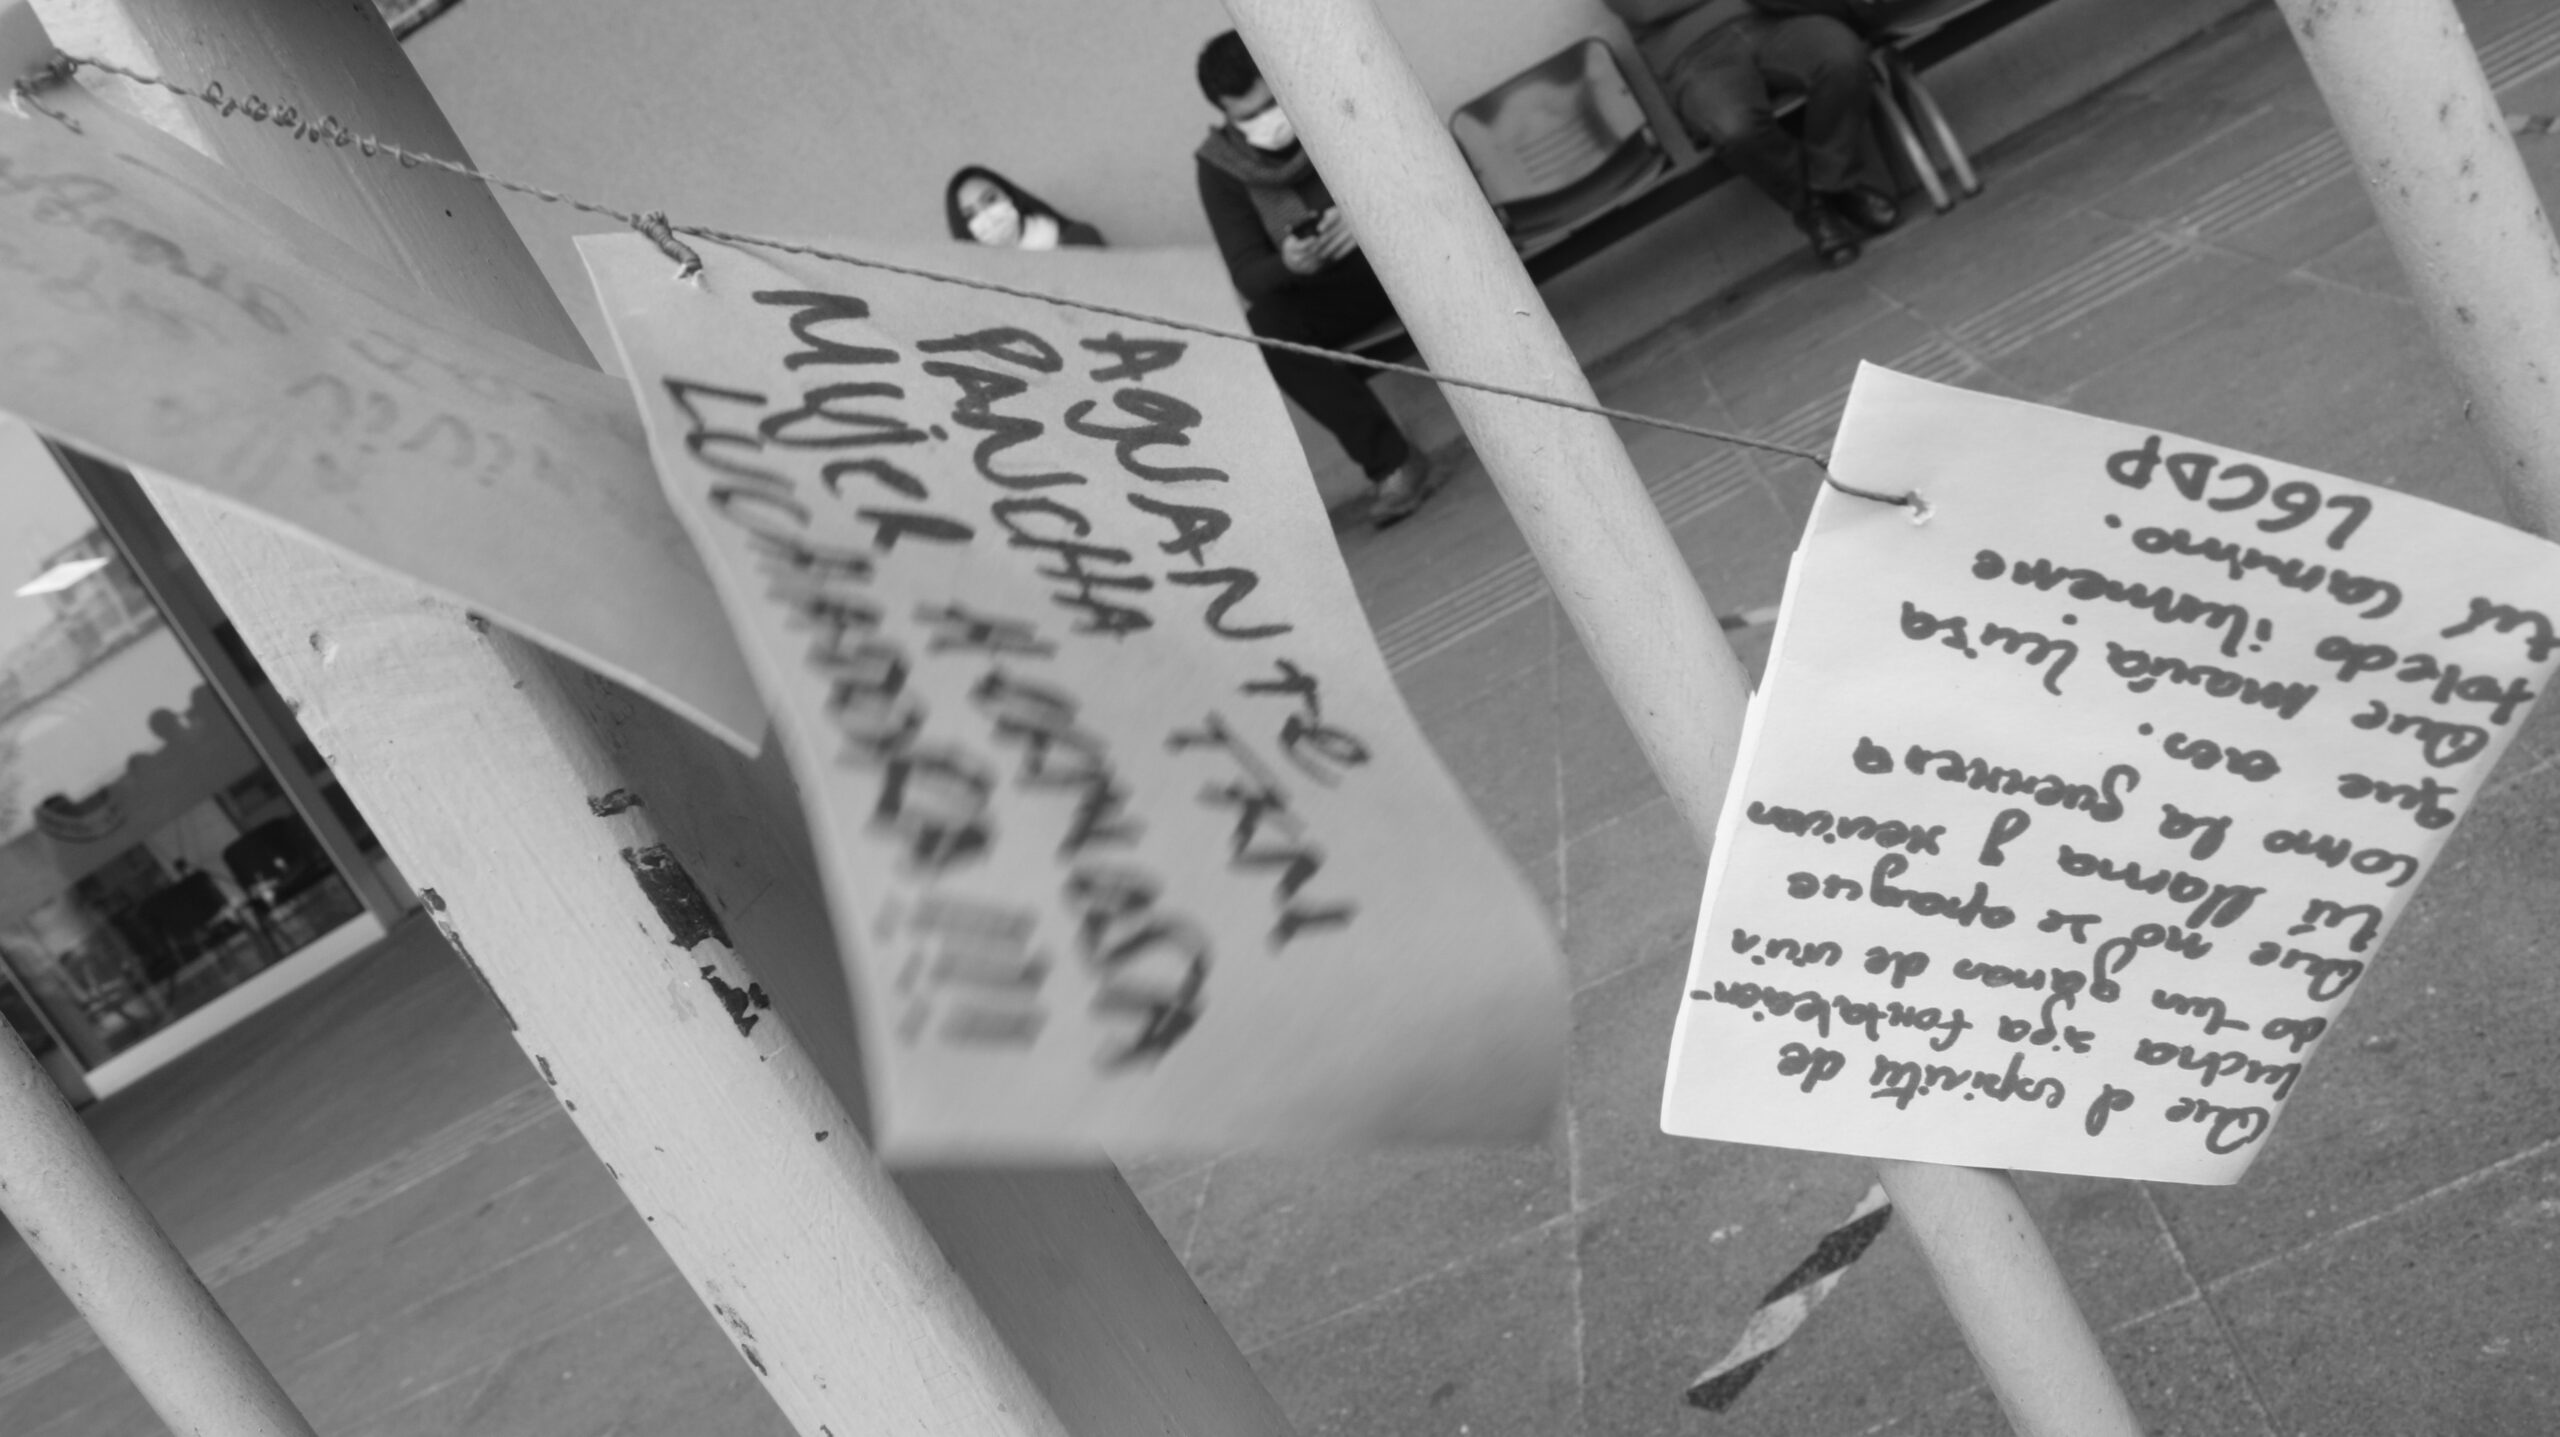 AGUANTE
PANCHA
MUJER
LUCHADORA!!!
Que el espiritu de
lucha siga fortalecien-
do tus ganas de vivir
Que no se apague
tú llama y revivas
como la guerrera
que eres.
Que maría luisa
toledo ilumene
tú camino.
LGCDP